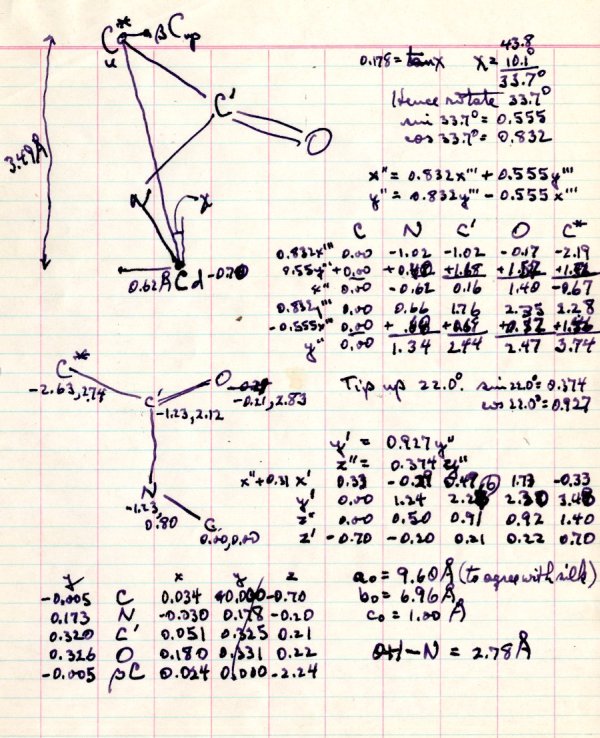 C* → βC up
u
C'
O
3.49Å
N
x
0.62Å Cd -0.70
43.8
0.178 = tan x   x = 10.1°
33.7°
Hence rotate 33.7°
sin 33.7° = 0.555
cos 33.7° = 0.832
x" = 0.832x''' + 0.555y'''
y" = 0.832y''' - 0.555x'''
C   N   C'   O   C*
0.832x'''   0.00   -1.02   -1.02   -0.17   -2.19
0.55y'''   +0.00
x"   0.00   -0.62   0.16   1.40   -0.67
0.832y'''   0.00   0.66   1.76   2.35   2.28
-0.555x'''   0.00
y"   0.00   1.34   2.44   2.47   3.74
C*
-2.63, 2.74
C'
-1.23, 2.12
O
-0.21, 2.83
N
-1.23,
0.80
C
0.00, 0.00
Tip up 22.0°.   sin 22.0° = 0.374
cos 22.0° = 0.927
y' = 0.927y"
z" = 0.374y"
x"+0.31   x'   0.33   -0.29   0.49   1.73   -0.33
y'   0.00   1.24   2.3   3.48
z"   0.00   0.50   0.91   0.92   1.40
z'   -0.70   -0.20   0.21   0.22   0.70
y   x   y   z
-0.005   C   0.034   +0.000   -0.70
0.173   N   -0.030   0.178   -0.20
0.320   C'   0.051   0.325   0.21
0.326   O   0.180   0.331   0.22
-0.005   βC   0.024   0.000   -2.24
a₀ = 9.60Å (to agree with silk)
b₀ = 6.96Å
c₀ = 1.00Å
OH—N = 2.78Å